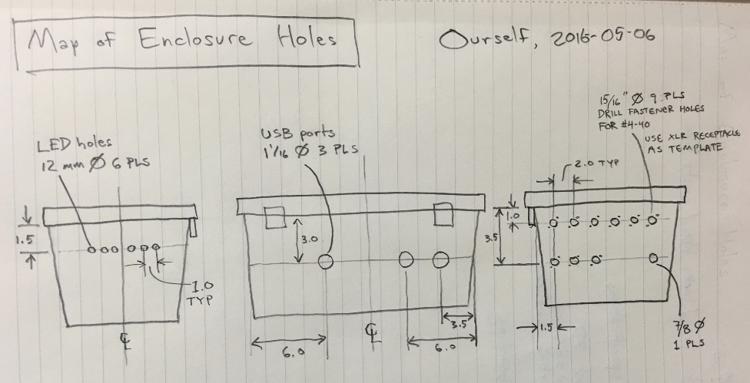 Map of Enclosure Holes
Ourself, 2016-05-06
LED holes
12 mm Ø 6 PLS
1.5
1.0
TYP
℄
USB ports
1 1/16 Ø 3 PLS
3.0
6.0
℄
3.5
6.0
15/16" Ø 9 PLS
DRILL FASTENER HOLES
FOR #4-40
USE XLR RECEPTACLE
AS TEMPLATE
2.0 TYP
1.0
3.5
1.5
7/8 Ø
1 PLS